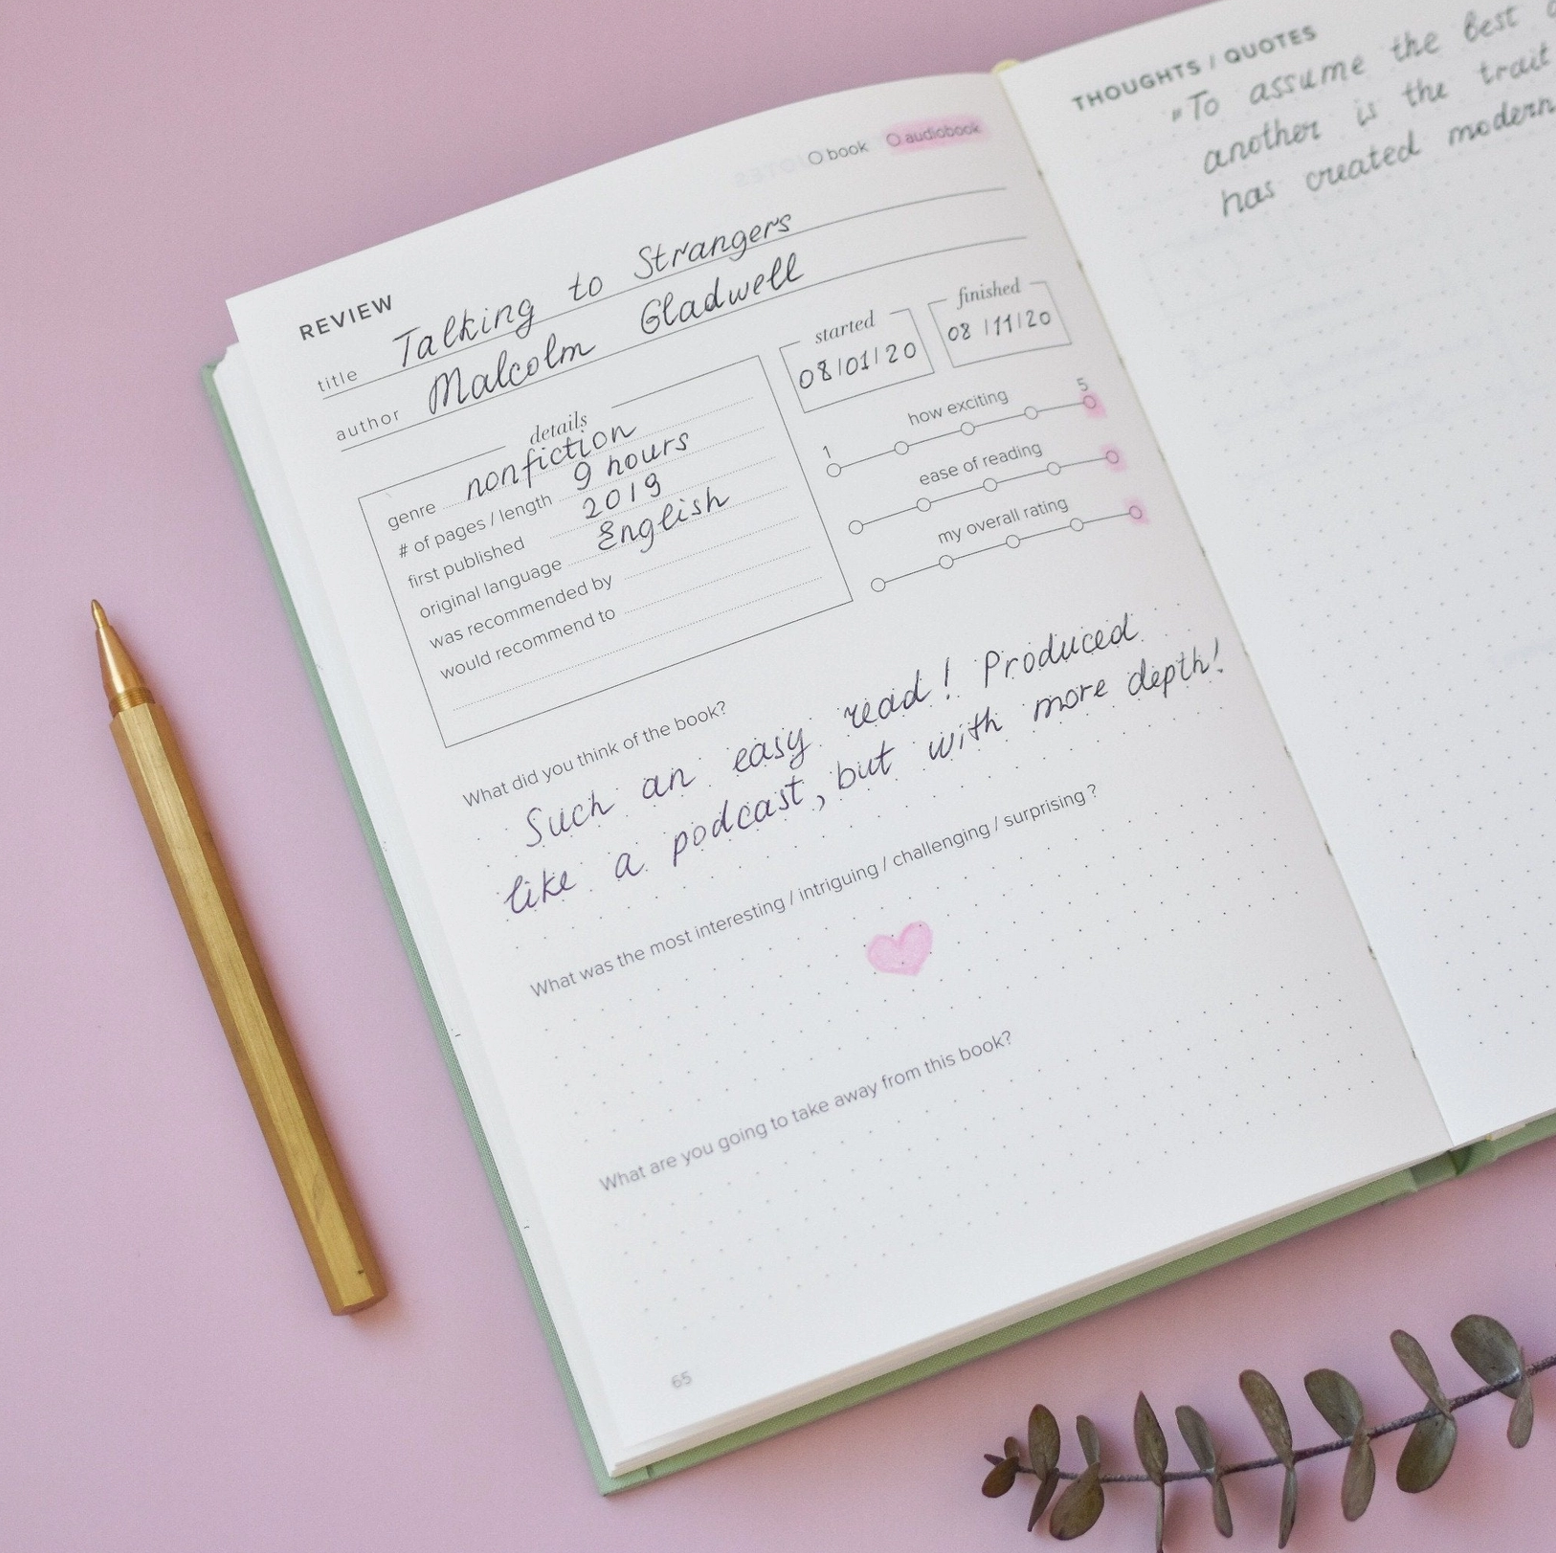 book audiobook
REVIEW
title Talking to Strangers
author Malcolm Gladwell
details
genre nonfiction
# of pages / length 9 hours
first published 2019
original language English
was recommended by
would recommend to
started
08/01/20
finished
08/11/20
how exciting
1 5
ease of reading
my overall rating
What did you think of the book?
Such an easy read! Produced
like a podcast, but with more depth!
What was the most interesting / intriguing / challenging / surprising?
What are you going to take away from this book?
65
THOUGHTS / QUOTES
„To assume the best
another is the trait
has created modern